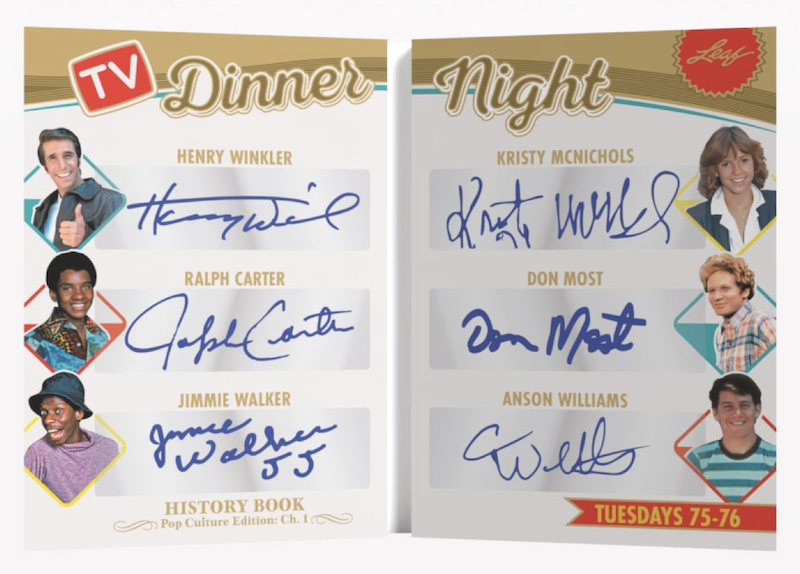 TV Dinner Night
Leaf
HENRY WINKLER
Henry Winkl
RALPH CARTER
Ralph Carter
JIMMIE WALKER
Jimmie
Walker
JJ
HISTORY BOOK
Pop Culture Edition: Ch. I
KRISTY MCNICHOLS
Kristy McNichol
DON MOST
Don Most
ANSON WILLIAMS
TUESDAYS 75-76